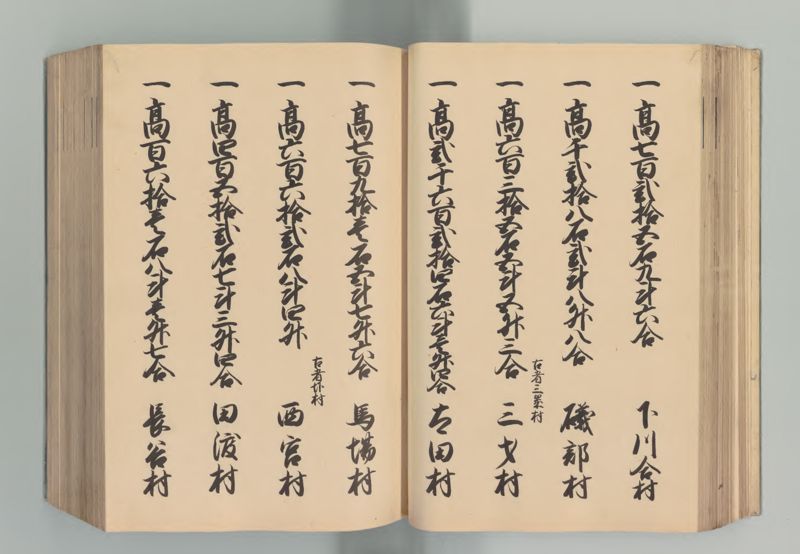 一 髙七百弐拾五石九斗六合 下川合村
一 髙千弐拾八石弐斗八升八合 磯部村
古者三累村
一 髙六百三拾五石五斗五升三合 三才村
一 髙弐千六百弐拾四石六斗壱升四合 太田村
一 髙七百九拾壱石五斗七升六合 馬場村
古者村
一 髙六百六拾弐石八斗四升 西宮村
一 髙四百五拾弐石七斗三升四合 田渡村
一 髙百六拾壱石八斗壱升七合 長谷村